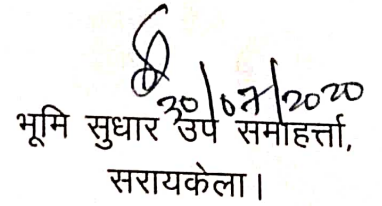 30/07/2020
भूमि सुधार उप समाहर्त्ता,
सरायकेला।